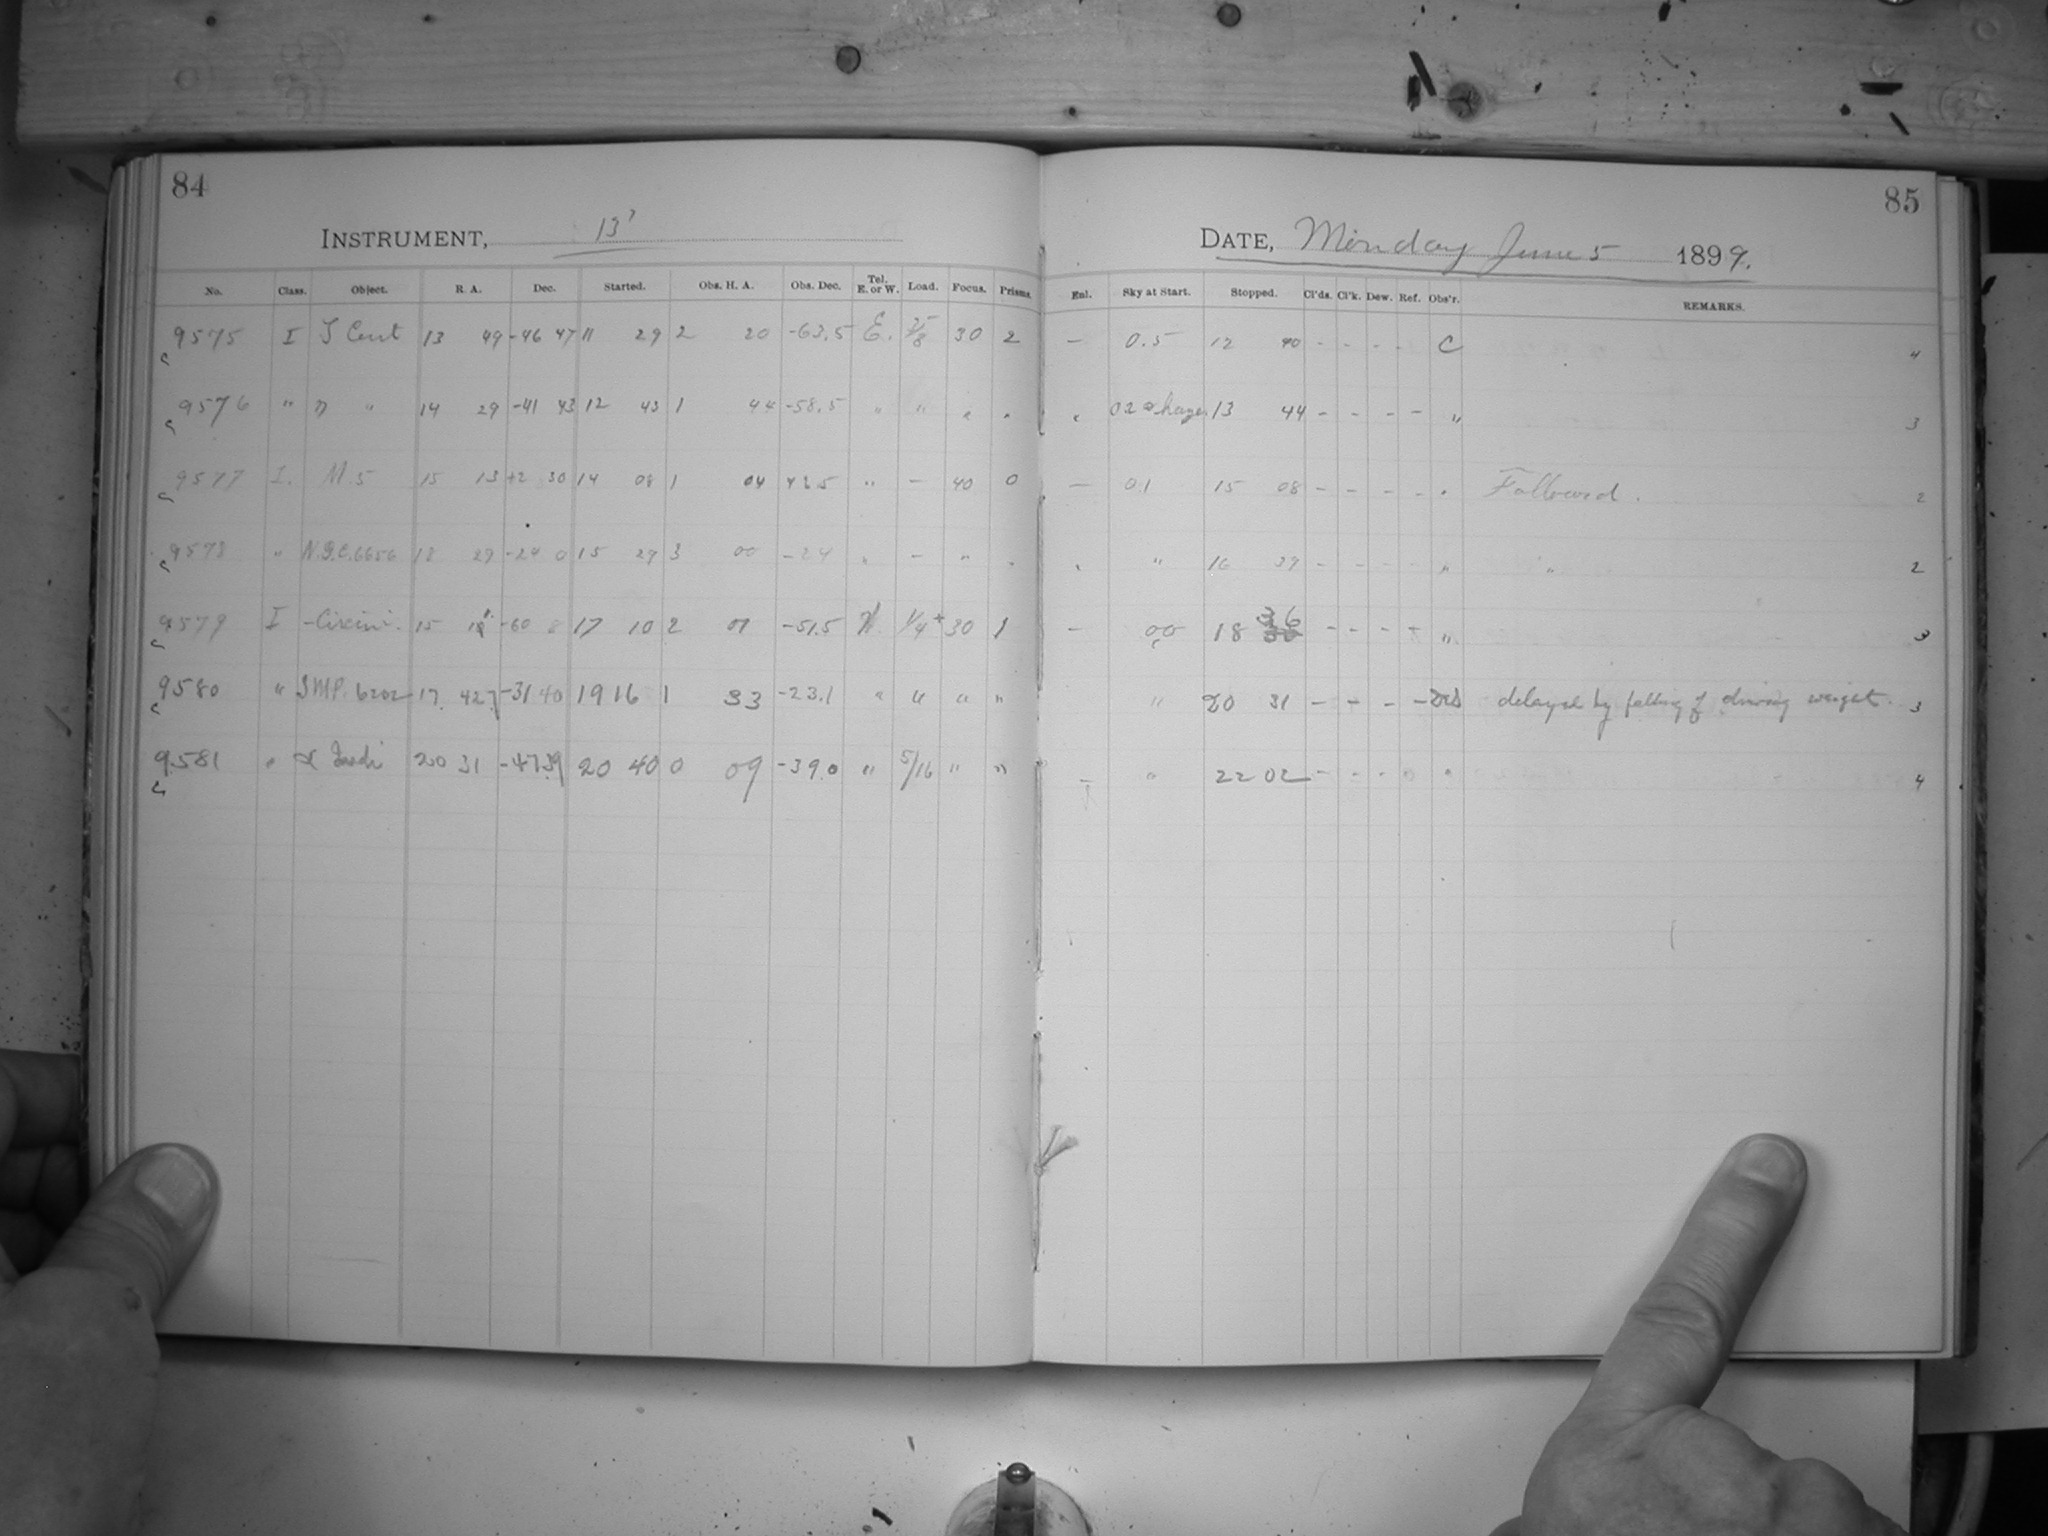 84
INSTRUMENT, 13"
No. Class. Object. R. A. Dec. Started. Obs. H. A. Obs. Dec. Tel. E. or W. Load. Focus. Prisms.
9575 I Cent 13 49 -46 47 11 29 2 20 -63.5 E. 30 2
9576 " η " 14 29 -41 43 12 43 1 44 -58.5 " " " "
9577 I. M. 5 15 13 +2 30 14 08 1 04 " - 40 0
9578 " N.G.C. 6656 18 29 -24 0 15 29 3 00 -24 " - " "
9579 I - Circini. 15 -60 8 17 10 2 01 -51.5 1/4+ 30 1
9580 " 6202 17 42.7 -31 40 19 16 1 33 -23.1 " " " "
9581 " α Indi 20 31 -47 39 20 40 0 09 -39.0 " 5/16 " "
85
DATE, Monday June 5 1899.
Enl. Sky at Start. Stopped. Cl'ds. Cl'k. Dew. Ref. Obs'r. REMARKS.
- 0.5 12 40 - - - - C 4
" 02 haze 13 44 - - - - " 3
- 01 15 08 - - - - " Followed. 2
" " 16 29 - - - - " " 2
- 00 18 36 - - - - " 3
" 20 31 - - - - delayed by falling of driving weight. 3
- " 22 02 - - - " 4